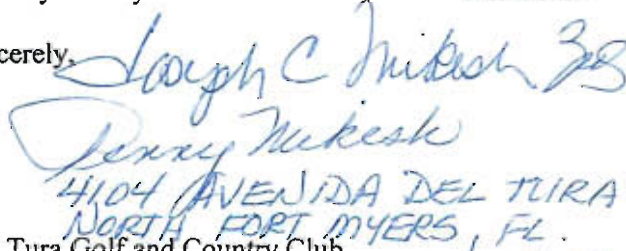 cerely,
Joseph C Mikesh
Penny Mikesh
4104 AVENIDA DEL TURA
NORTH FORT MYERS, FL.
Tura Golf and Country Club